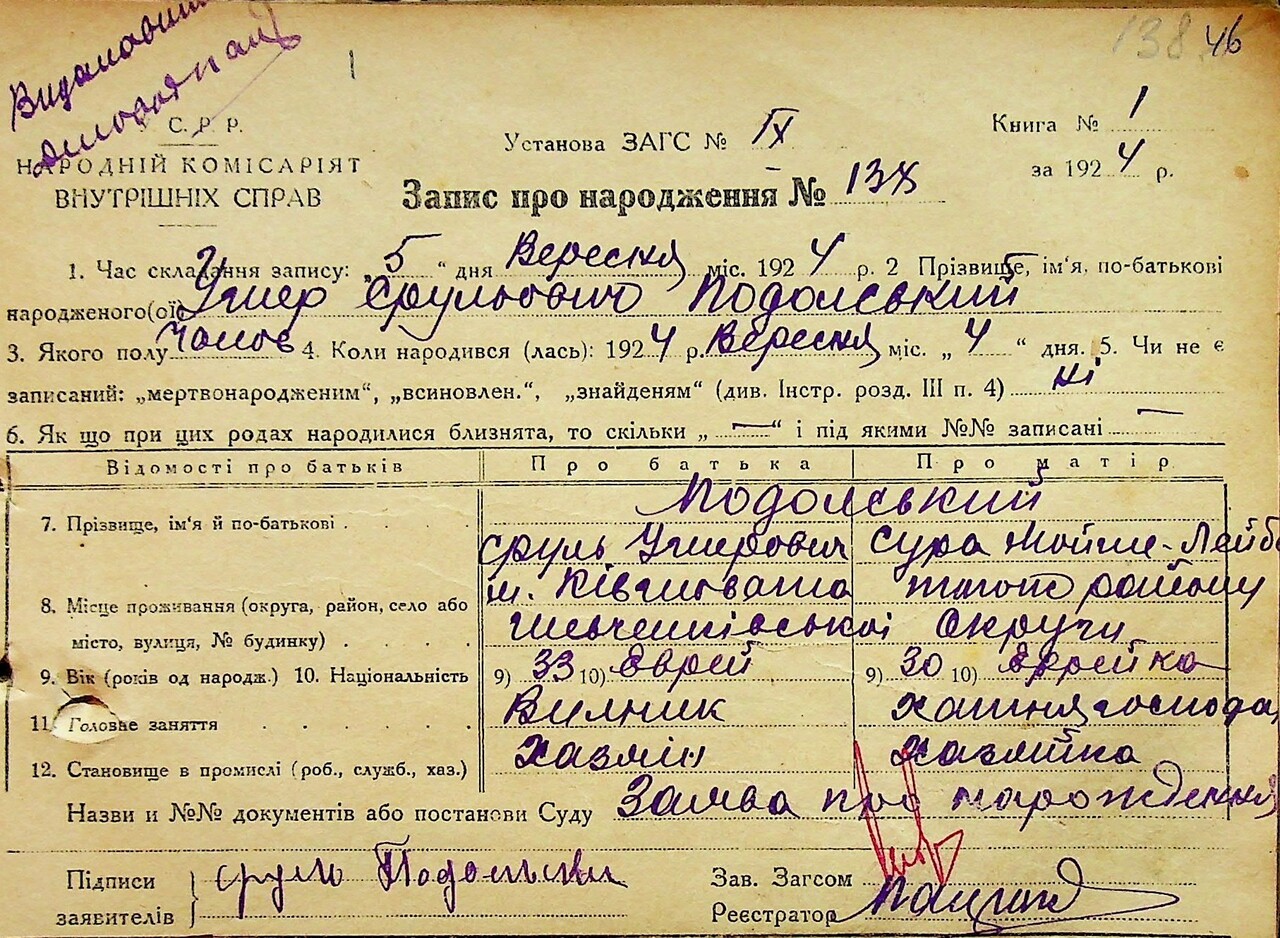 138 46
Видано
У. С. Р. Р.
НАРОДНІЙ КОМІСАРІЯТ
ВНУТРІШНІХ СПРАВ
Установа ЗАГС № IX
Книга № 1
за 1924 р.
Запис про народження № 138
1. Час складання запису: „5“ дня Вересня міс. 1924 р. 2 Прізвище, ім'я, по-батькові
народженого(ої) Ушер Срульович Подольський
3. Якого полу Чолов 4. Коли народився (лась): 1924 р. Вересня міс. „4“ дня. 5. Чи не є
записаний: „мертвонародженим“, „всиновлен.“, „знайденям“ (див. Інстр. розд. III п. 4) ні
6. Як що при цих родах народилися близнята, то скільки „—“ і під якими №№ записані —
Відомості про батьків Про батька Про матір
Подольський
7. Прізвище, ім'я й по-батькові
Сруль Ушерович Сура Мойше-Лейб
м. Ківшовата того району
8. Місце проживання (округа, район, село або
місто, вулиця, № будинку)
Шевченківської Округи
9. Вік (років од народж.) 10. Національність 9) 33 10) Єврей 9) 30 10) Єврейка
11. Головне заняття хатня господа
12. Становище в промислі (роб., служб., хаз.) Хазяїн Хазяйка
Назви и №№ документів або постанови Суду Заява про народження
Підписи
заявителів
Сруль Подольски
Зав. Загсом
Реєстратор